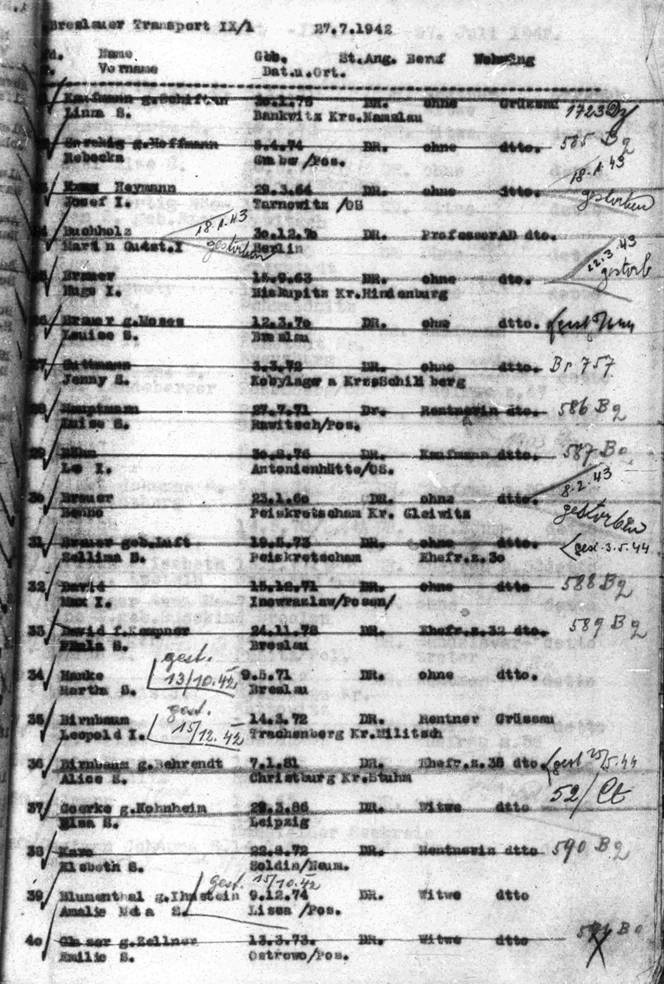 Breslauer Transport IX/1 27.7.1942
Name Geb. St.Ang. Beruf Wohnung
Vorname Dat.u.Ort.
Kaufmann g.Schiftan 30.1.75 DR. ohne Grüssau 1723
Linna S. Bankwitz Krs.Namslau
g.Hoffmann 5.4.74 DR. ohne dtto. 585 Bq
Rebecka /Pos.
Heymann 29.3.64 DR. ohne dtto. 18.1.43
Josef I. Tarnowitz /OS gestorben
Buchholz 18.1.43 30.12.7 DR. Professor AD dto.
Martin Gudst.I gestorben Berlin
Brauer 63 DR. ohne dto. 22.3.43
Hugo I. Biskupitz Kr.Hindenburg gestorb
26 Brauer g.Moses 12.3.7o DR. ohne dtto.
Louise S. Breslau
27 Guttmann 3.3.72 DR. ohne dtto. Br 757
Jenny S. Kobylagora Krs.Schildberg
28 Hauptmann 27.7.71 Dr. Rentnerin dto. 586 Bq
Luise S. Rawitsch/Pos.
29 Böhm 30.8.76 DR. Kaufmann dto. 587 Bq
Leo I. Antonienhütte/OS.
3o Brauer 23.1.6o DR. ohne dtto. 8.2.43
Benno Peiskretscham Kr. Gleiwitz gestorben
31 Brauer geb.Luft 19.5.73 DR. ohne dtto. gest. 3.5.44
Zellina S. Peiskretscham Ehefr.z.3o
32 David 15.12.71 DR. ohne dtto 588 Bq
Max I. Inowrazlaw/Posen/
33 David f.Kempner 24.11.78 DR. Ehefr.z.32 dto. 589 Bq
S. Breslau
34 Hanke gest. 9.5.71 DR. ohne dto.
Martha S. 13/10.42 Breslau
35 Birnbaum gest. 14.3.72 DR. Rentner Grüssau
Leopold I. 15/12.42 Trachenberg Kr.Militsch
36 Birnbaum g.Behrendt 7.1.81 DR. Ehefr.z.35 dto gest 5.44
Alice S. Christburg Kr.Stuhm 52/Ct
37 Goerke g.Kohnheim 29.3.66 DR. Witwe dto
Elsa S. Leipzig
38 Karo 22.8.72 DR. Rentnerin dtto 590 Bq
Elsbeth S. Soldin/Neum.
gest. 15/10.42
39 Blumenthal g.Ihnstein 9.12.74 DR. Witwe dtto
Amalie Meta S. Lissa /Pos.
4o Glaser g.Zellner 13.3.73. DR. Witwe dtto
Emilie S. Ostrowo/Pos.